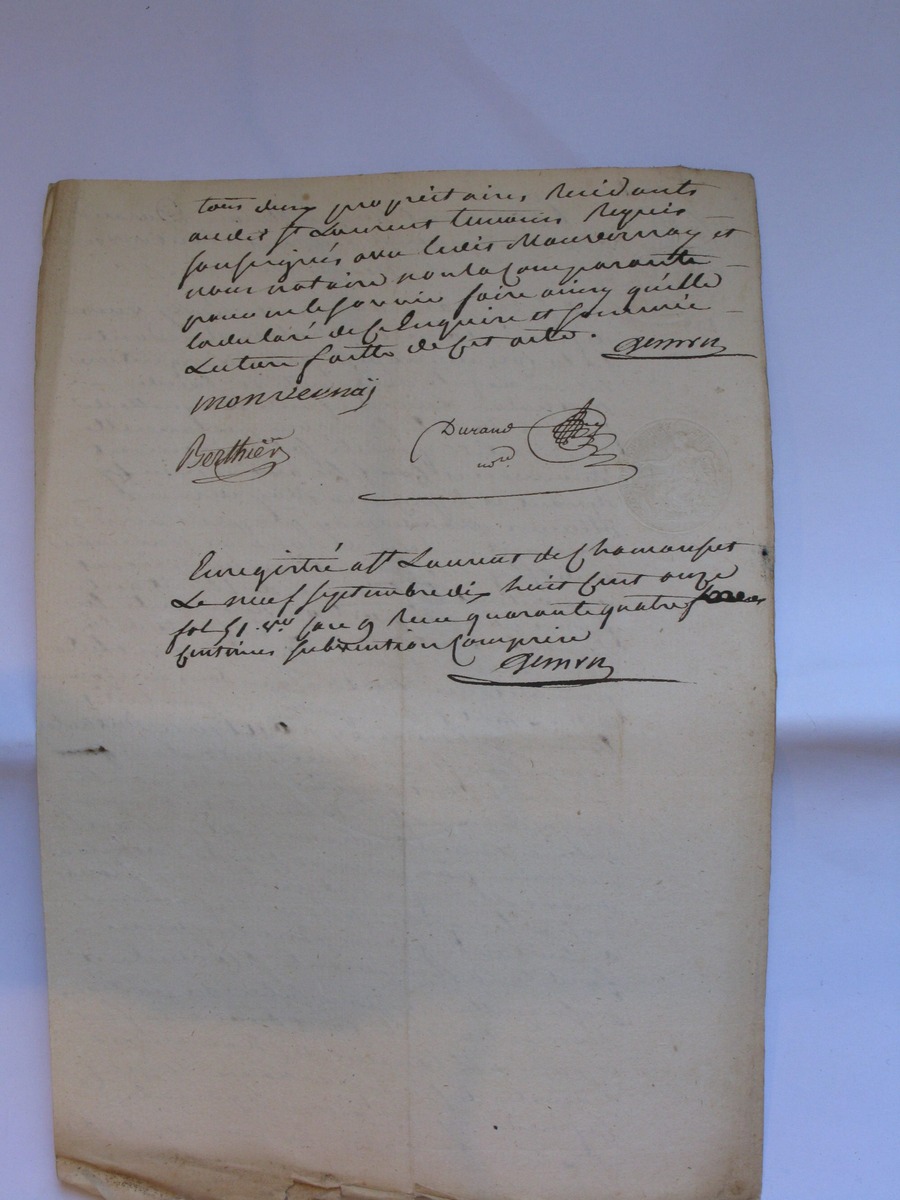 tous deux propriétaires Residants
audit St Laurent temoins Requis
soussignés avec ledit Monvernay et
nous notaire non la Comparante
pour ne le savoir faire ainsy qu'elle
la declaré de Ce Enquise et sommée
Lecture faitte de Cet acte.
monvernaÿ
Berthier
Durand
nore
Enregistré a St Laurent de Chamousset
Le neuf septembre dix huit Cent onze
fol 51 vo Case 9 Recu quarante quatre
Centimes subvention Comprise